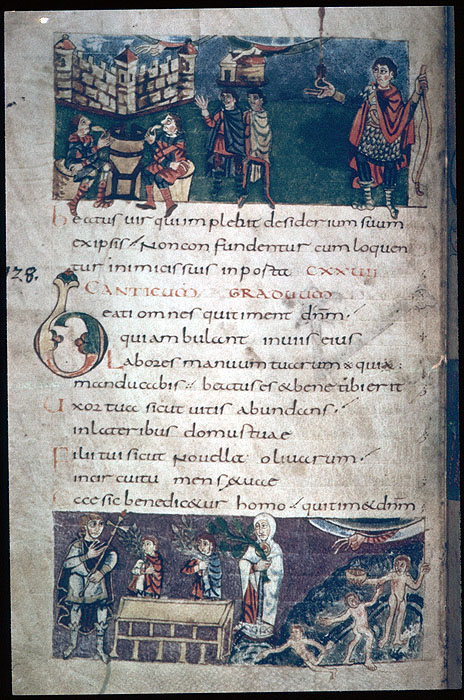 Beatus uir qui implebit desiderium suum
ex ipsis / Non confundentur cum loquen
128.
tur inimicis suis in porta CXXVII
CANTICUM GRADUUM
Beati omnes qui timent dnm
qui ambulant in uiis eius
Labores manuum tuarum & quia
manducabis beatus es & bene tibi erit
Uxor tua sicut uitis abundans
in lateribus domus tuae
Filii tui sicut nouelle oliuarum
in circuitu mense tuae
Ecce sic benedic&ur homo qui tim& dnm